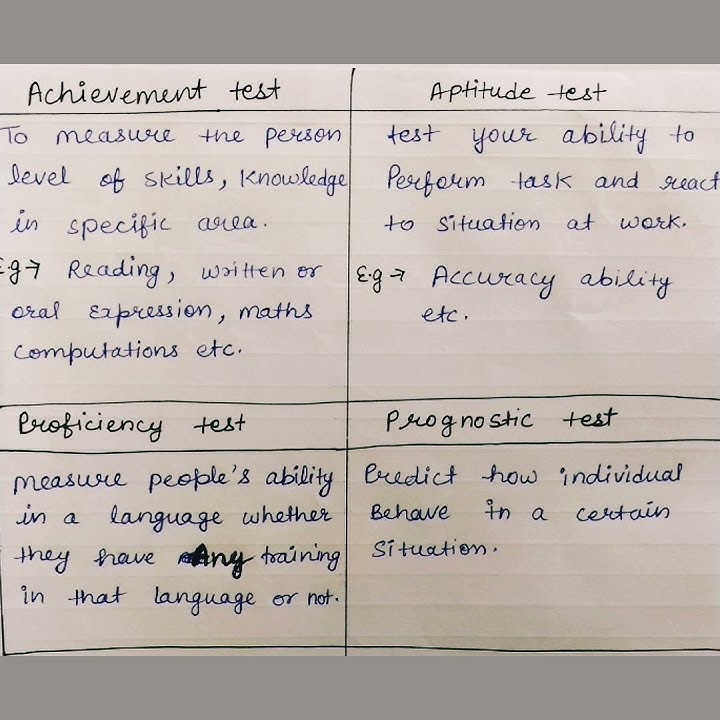 Achievement test
To measure the person
level of skills, knowledge
in specific area.
E.g → Reading, written or
oral expression, maths
computations etc.
Aptitude test
test your ability to
Perform task and react
to situation at work.
E.g → Accuracy ability
etc.
Proficiency test
measure people's ability
in a language whether
they have Any training
in that language or not.
Prognostic test
Predict how individual
Behave in a certain
situation.